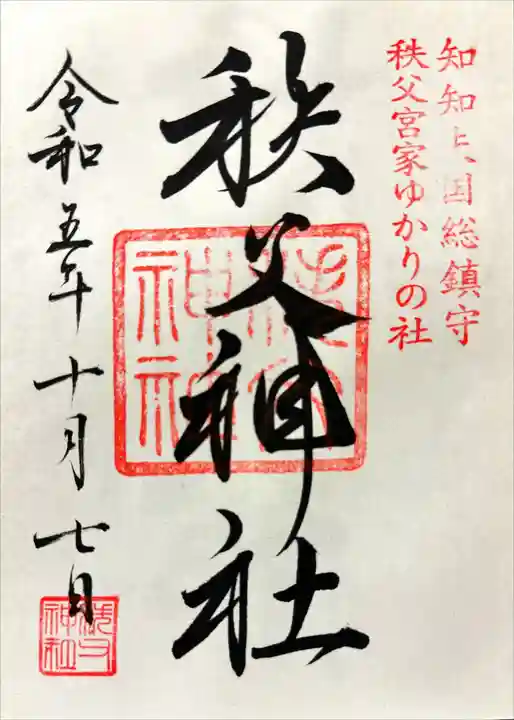 知知夫国総鎮守
秩父宮家ゆかりの社
秩父神社
令和五年十月七日
秩父神社
秩父神社